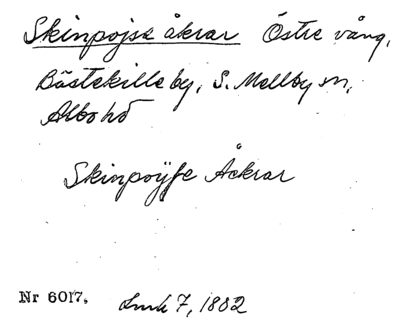 Skinpojsk åkrar Östre vång,
Bästekille by, S. Mellby sn,
Albo hd
Skinpoÿse Åckrar
Nr 6017. Lmk 7, 1802